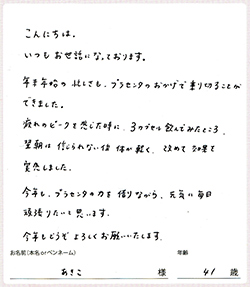 こんにちは。
いつもお世話になっております。
年末年始の忙しさも、プラセンタのおかげで乗り切ることが
できました。
疲れのピークを感じた時に、3カプセル飲んでみたところ、
翌朝は信じられない位体が軽く、改めて効果を
実感しました。
今年も、プラセンタの力を借りながら、元気に毎日
頑張りたいと思います。
今年もどうぞよろしくお願いいたします。
お名前(本名orペンネーム) 年齢
あきこ 様 41 歳